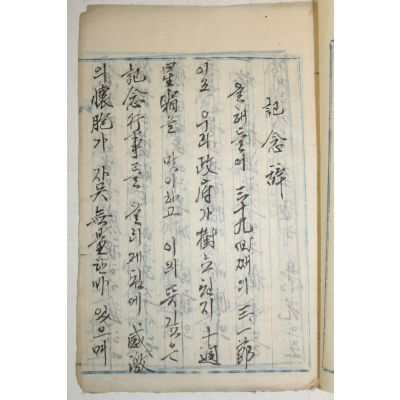 記念辭
올해들어 三十九回째의 三一節
이요 우리 政府가 樹立된지 十週
星霜을 맞이하고 이의 뜻깊은
記念行事를 올리게됨에 感激
의 懷胞가 자못 無量한바 있으며